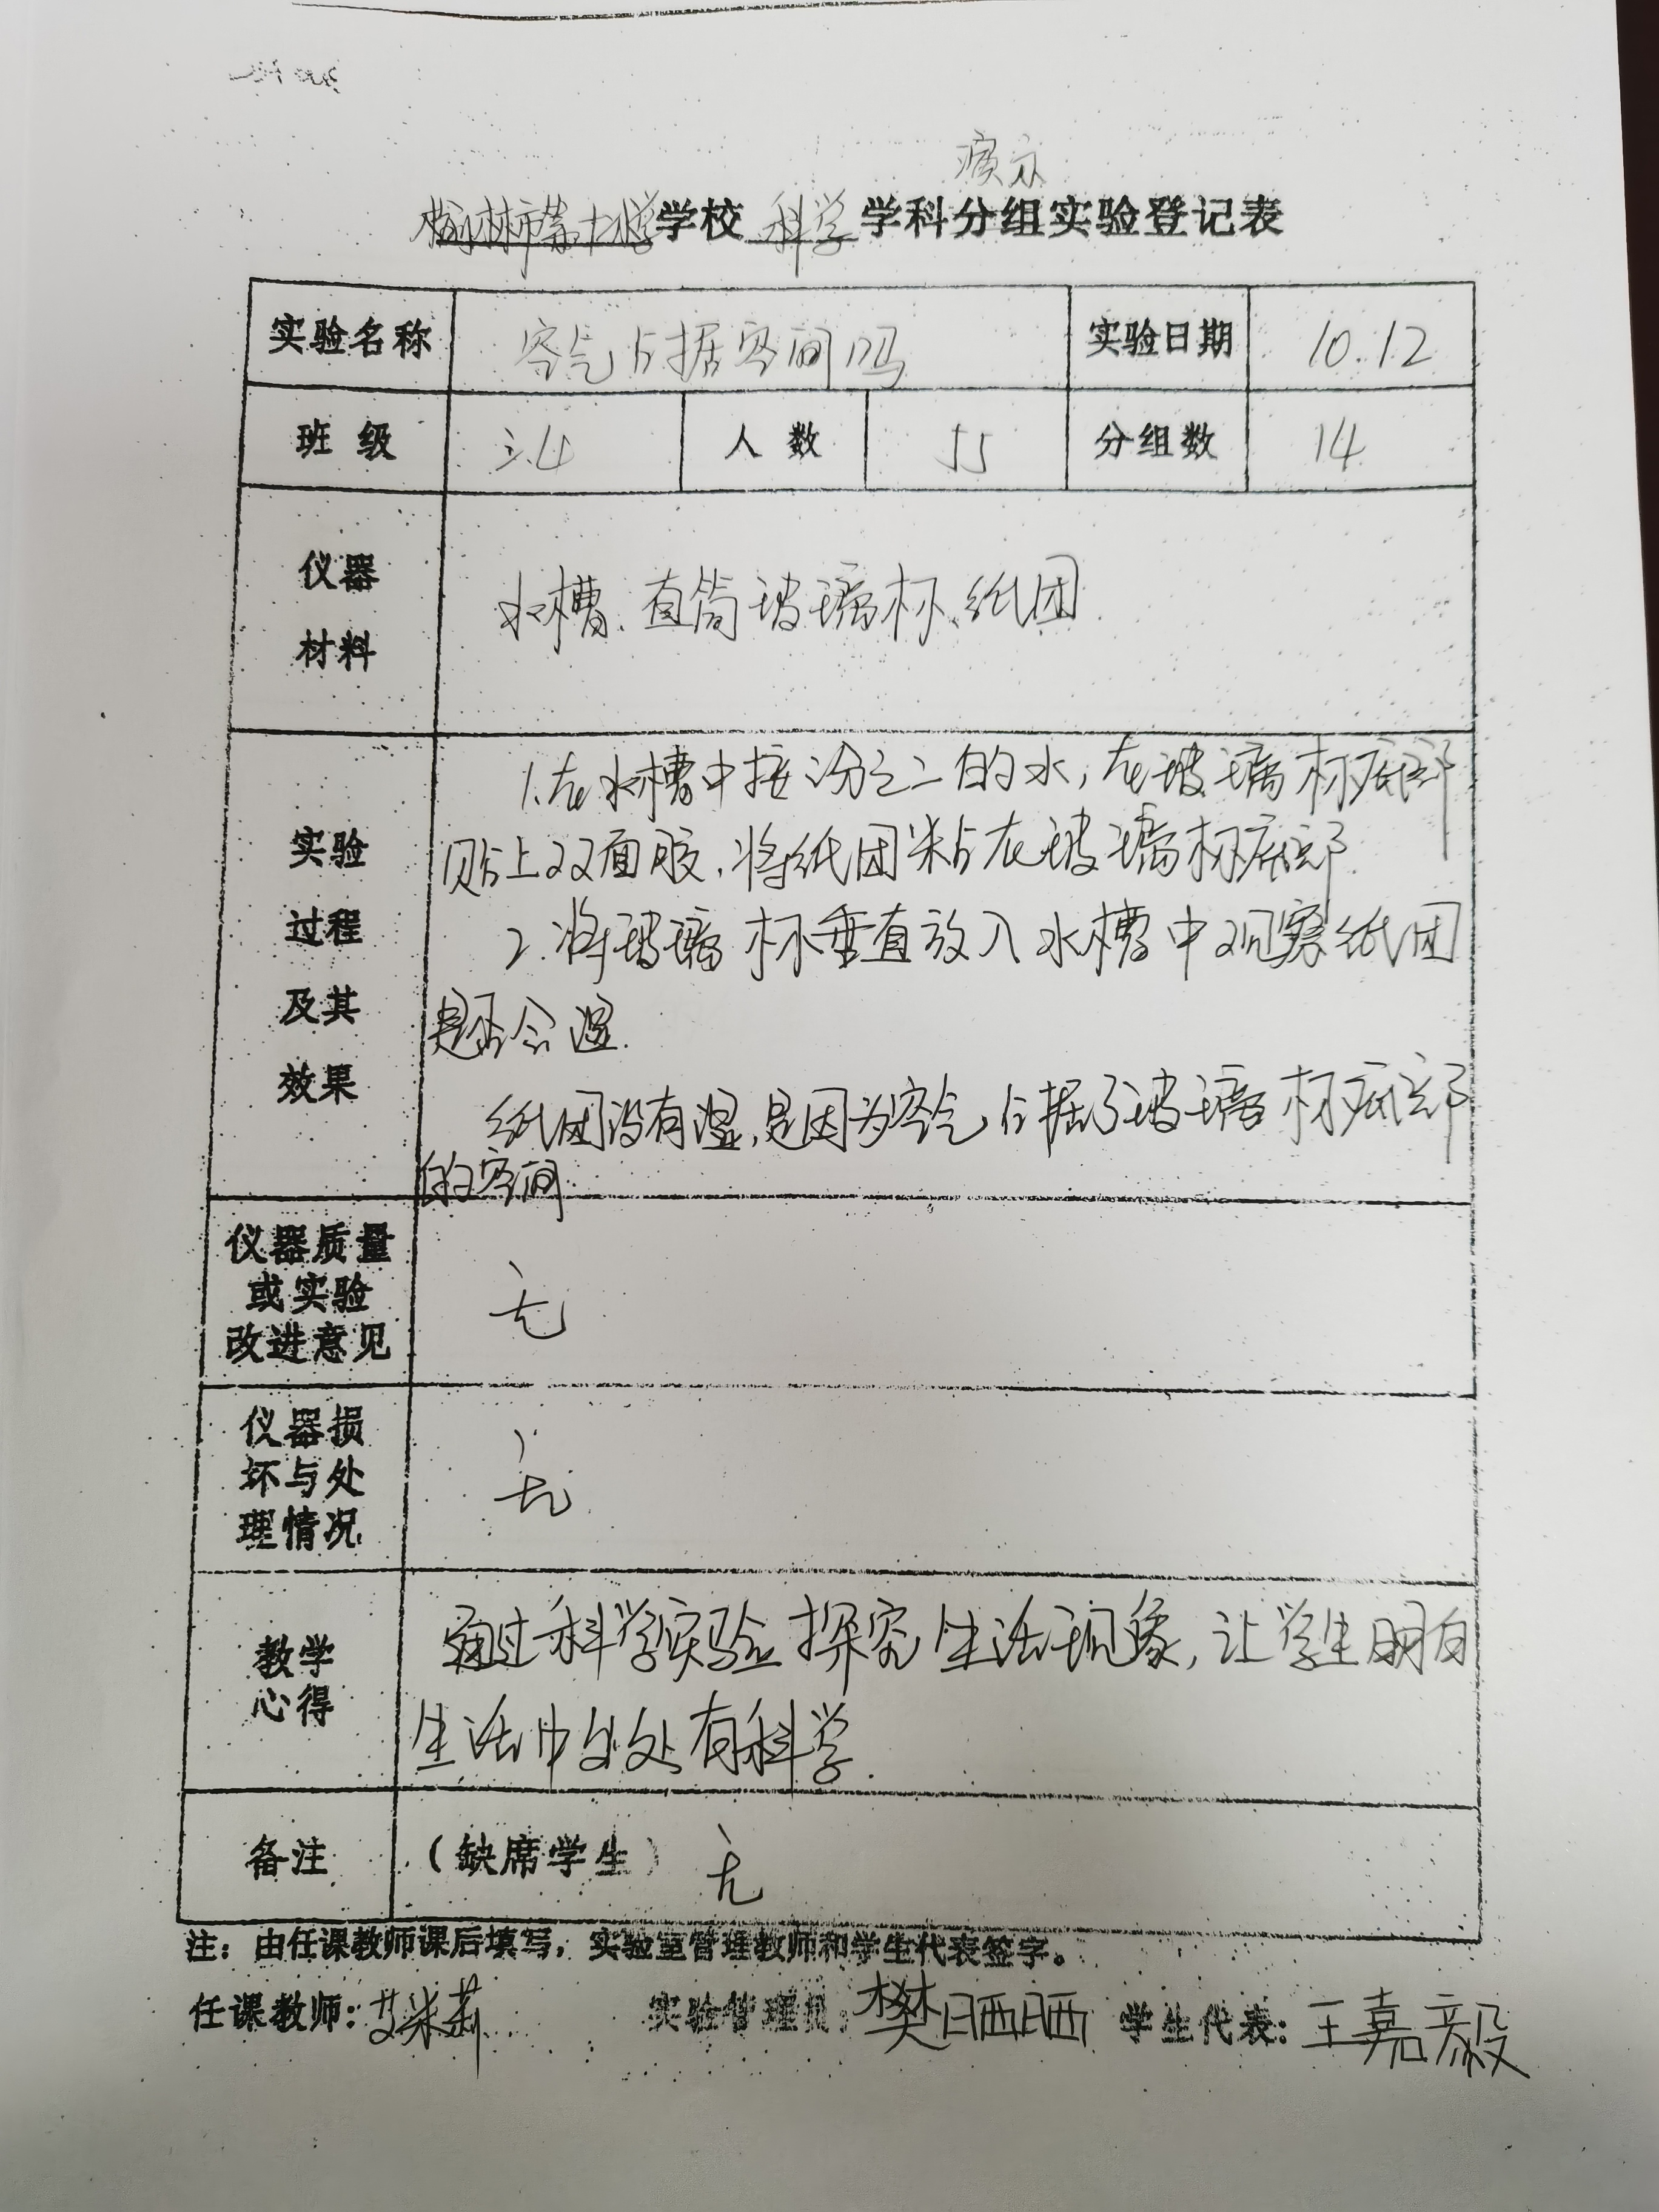 演示
榆林市第十小学学校 科学 学科分组实验登记表
实验名称 空气占据空间吗 实验日期 10.12
班级 三.4 人数 55 分组数 14
仪器
材料
水槽、直筒玻璃杯、纸团
实验
过程
及其
效果
1.在水槽中接三分之二的水,在玻璃杯底部
贴上双面胶,将纸团粘在玻璃杯底部.
2.将玻璃杯垂直放入水槽中观察纸团
是否会湿.
纸团没有湿,是因为空气占据了玻璃杯底部
的空间.
仪器质量
或实验
改进意见
无
仪器损
坏与处
理情况
无
教学
心得
通过科学实验探究生活现象,让学生明白
生活中处处有科学.
备注 (缺席学生) 无
注:由任课教师课后填写,实验室管理教师和学生代表签字。
任课教师: 实验管理员:樊晒晒 学生代表:王嘉毅